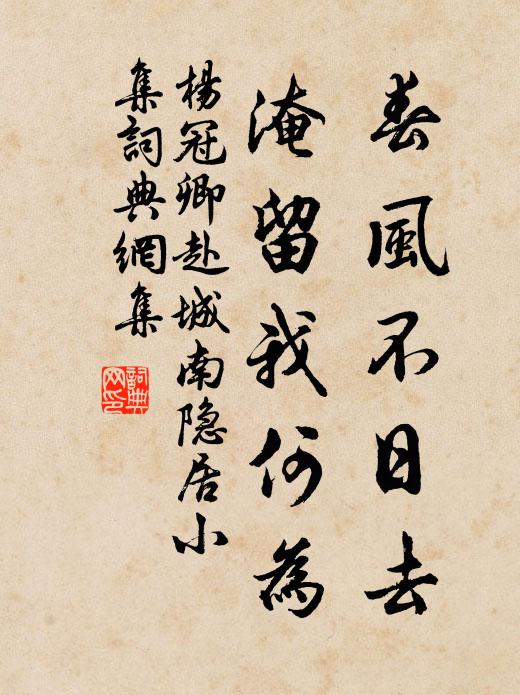 春風不日去
淹留我何為
楊冠卿赴城南隐居小
集詞典網集
詞典
网印